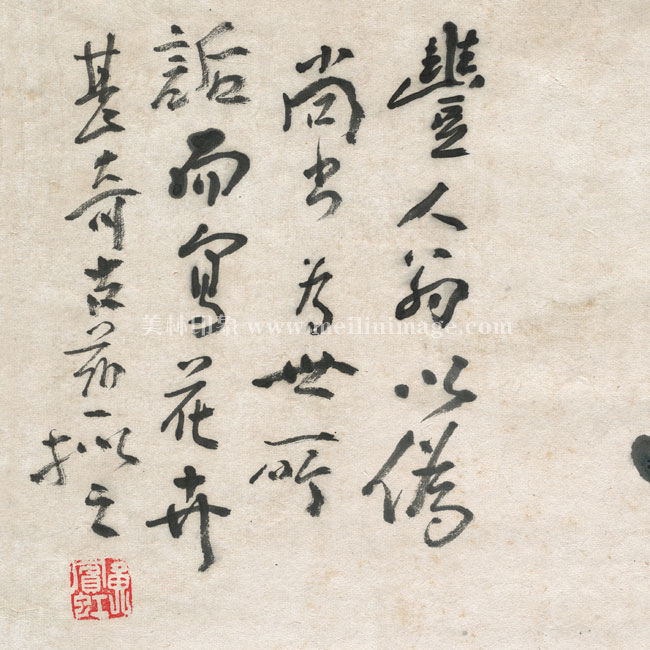 豐人翁以偽
尚書為世所
詬而寫花卉
甚奇古茲一擬之
黃賓虹
美林印象 www.meilinimage.com